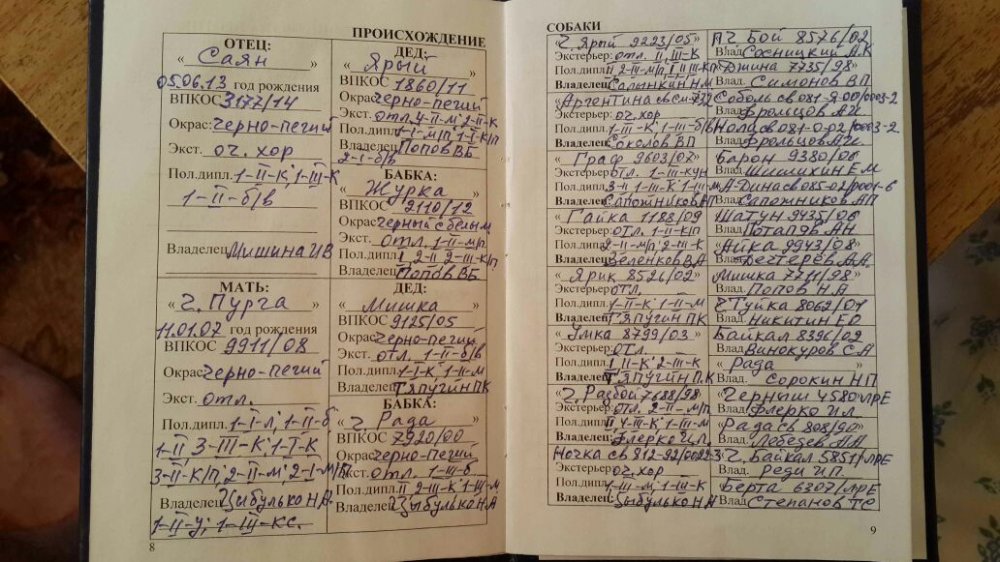 ПРОИСХОЖДЕНИЕ
ОТЕЦ:
« Саян »
05.06.13 год рождения
ВПКОС 3177/14
Окрас: черно-пегий
Экст. оч. хор
Пол.дипл. 1-II-К, 1-III-К
1-II-б/в
Владелец Мишина И В
МАТЬ:
« Ч. Пурга »
11.01.07 год рождения
ВПКОС 9911/08
Окрас черно-пегий
Экст. отл.
Пол.дипл. 1-I-Л, 1-II-б
1-II 3-III-К, 1-I-К
3-II-К/п, 2-II-м, 2-I-м/п
Владелец Цыбулько Н.А.
1-II-у; 1-III-кс.
8
ДЕД:
« Ярый »
ВПКОС 1860/11
Окрас черно-пегий
Экст. отл. 4-II-м, 2-II-К
Пол.дипл. 1-I-м/п, 1-I-К/п
Владелец Попов ВБ
2-I-б/в
БАБКА:
« Журка »
ВПКОС 2110/12
Окрас черный с белым
Экст. отл. 1-II-м/п
Пол.дипл.
Владелец Попов ВБ
ДЕД:
« Мишка »
ВПКОС 9125/05
Окрас черно-пегий
Экст. отл. 1-II-б/в
Пол.дипл. 1-I-К, 1-II-м
Владелец Тяпугин ПК
БАБКА:
« Ч. Рада »
ВПКОС 7920/00
Окрас черно-пегий
Экст. отл. 1-III-б
Пол.дипл. II 2-III-К, 1-III-м
Владелец Цыбулько Н А
СОБАКИ
« Ч. Ярый 9223/05 »
Экстерьер: отл. II, III-К
Пол.дипл.
Владелец Салынкин НМ
« Аргентина
Экстерьер: оч. хор
Пол.дипл. 1-III-К, 1-III-б/в
Владелец Соколов ВП
« Граф 9603/07 »
Экстерьер отл. 1-III-КУН
Пол.дипл. 3-II 1-III-К 1-III-м
Владелец Сапожников АП
« Гайка 1188/09
Экстерьер: отл. 1-II-К
Пол.дипл. 2-II-м/п, 2-III-К
Владелец Зеленков В А
« Ярик 8526/02 »
Экстерьер: отл.
Пол.дипл. 1-II-К 1-II-м
Владелец Тяпугин ПК
« Умка 8799/03 »
Экстерьер отл
Пол.дипл. 1 II-К, 2-III-К
Владелец Тяпугин П.К
« Ч. Разбой 7688/98 »
Экстерьер: отл. 2-II-м/п
Пол.дипл. II, 4-III-К, 1-II-К
Владелец Флерко И.Л.
Ночка св 812-92/0022-3
Экстерьер оч. хор
Пол.дипл. 1-III-м, 1-III-К
Владелец Цыбулько Н А
П.Ч. Бой 8576/02
Влад. Сосницкий А К
« Джина 7735/98 »
Влад. Симонов ВП
Соболь св 081-Я-00/0003-2
Влад. Фрольцов А И
Нола св 081-0-02/0003-2
Влад. Фрольцов А И
Барон 9380/06
Влад. Шишихин Е М
А-Дина св 085-02/0001-6
Влад. Сапожников АП
Шатун 9435/06
Влад. Потапов АН
« Айка 9943/08 »
Влад. Дегтерев А А
Мишка 7711/98
Влад. Попов Н А
Ч Гуйка 8062/01
Влад. Никитин Е О
Байкал 8396/02
Влад. Винокуров С А
« Рада »
Влад. Сорокин Н П
« Черныш 4580 ЛРЕ
Влад. Флерко И Л
« Рада св 808/90 »
Влад. Лебедев А А
Ч. Байкал 5851/ЛРЕ
Влад. Реди И П.
Берта 6307/ЛРЕ
Влад. Степанов ТС
9